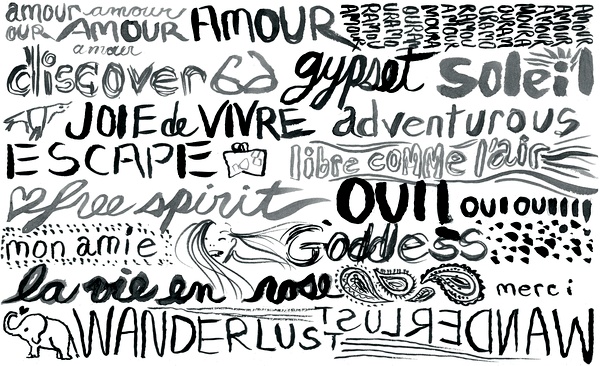 amour amour
OUR AMOUR AMOUR
amour
discover gypset soleil
JOIE de VIVRE adventurous
ESCAPE libre comme l'air
free spirit OUI! oui oui!!!!
mon amie Goddess
la vie en rose merci
WANDERLUST WANDERLUST